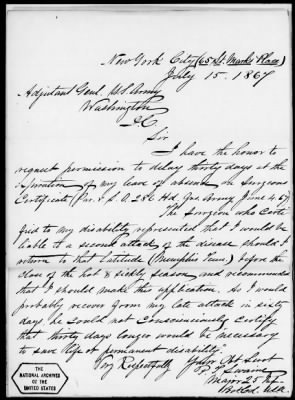 New York City (65 St. Marks Place)
July 15. 1867
Adjutant Genl. U.S. Army
Washington
D.C
Sir
I have the honor to
request permission to delay thirty days at the
Expiration of my leave of absence on Surgeons
Certificate (Par. 8 S.O. 286 Hd. Qrs Army June 4. 67)
The Surgeon who Certi
fied to my disability represented that I would be
liable to a second attack of the disease should I
return to that Latitude (Memphis Tenn.) before the
close of the hot & sickly season, and recommended
that I should make this application. As I would
probably recover from my late attack in sixty
days he could not Consciensiously Certify
that thirty days longer would be necessary
to save life or permanent disability.
Very Respectfully Your Obt Servt
P. T. Swaine
Major 25 Inf
THE
NATIONAL ARCHIVES
OF THE
UNITED STATES